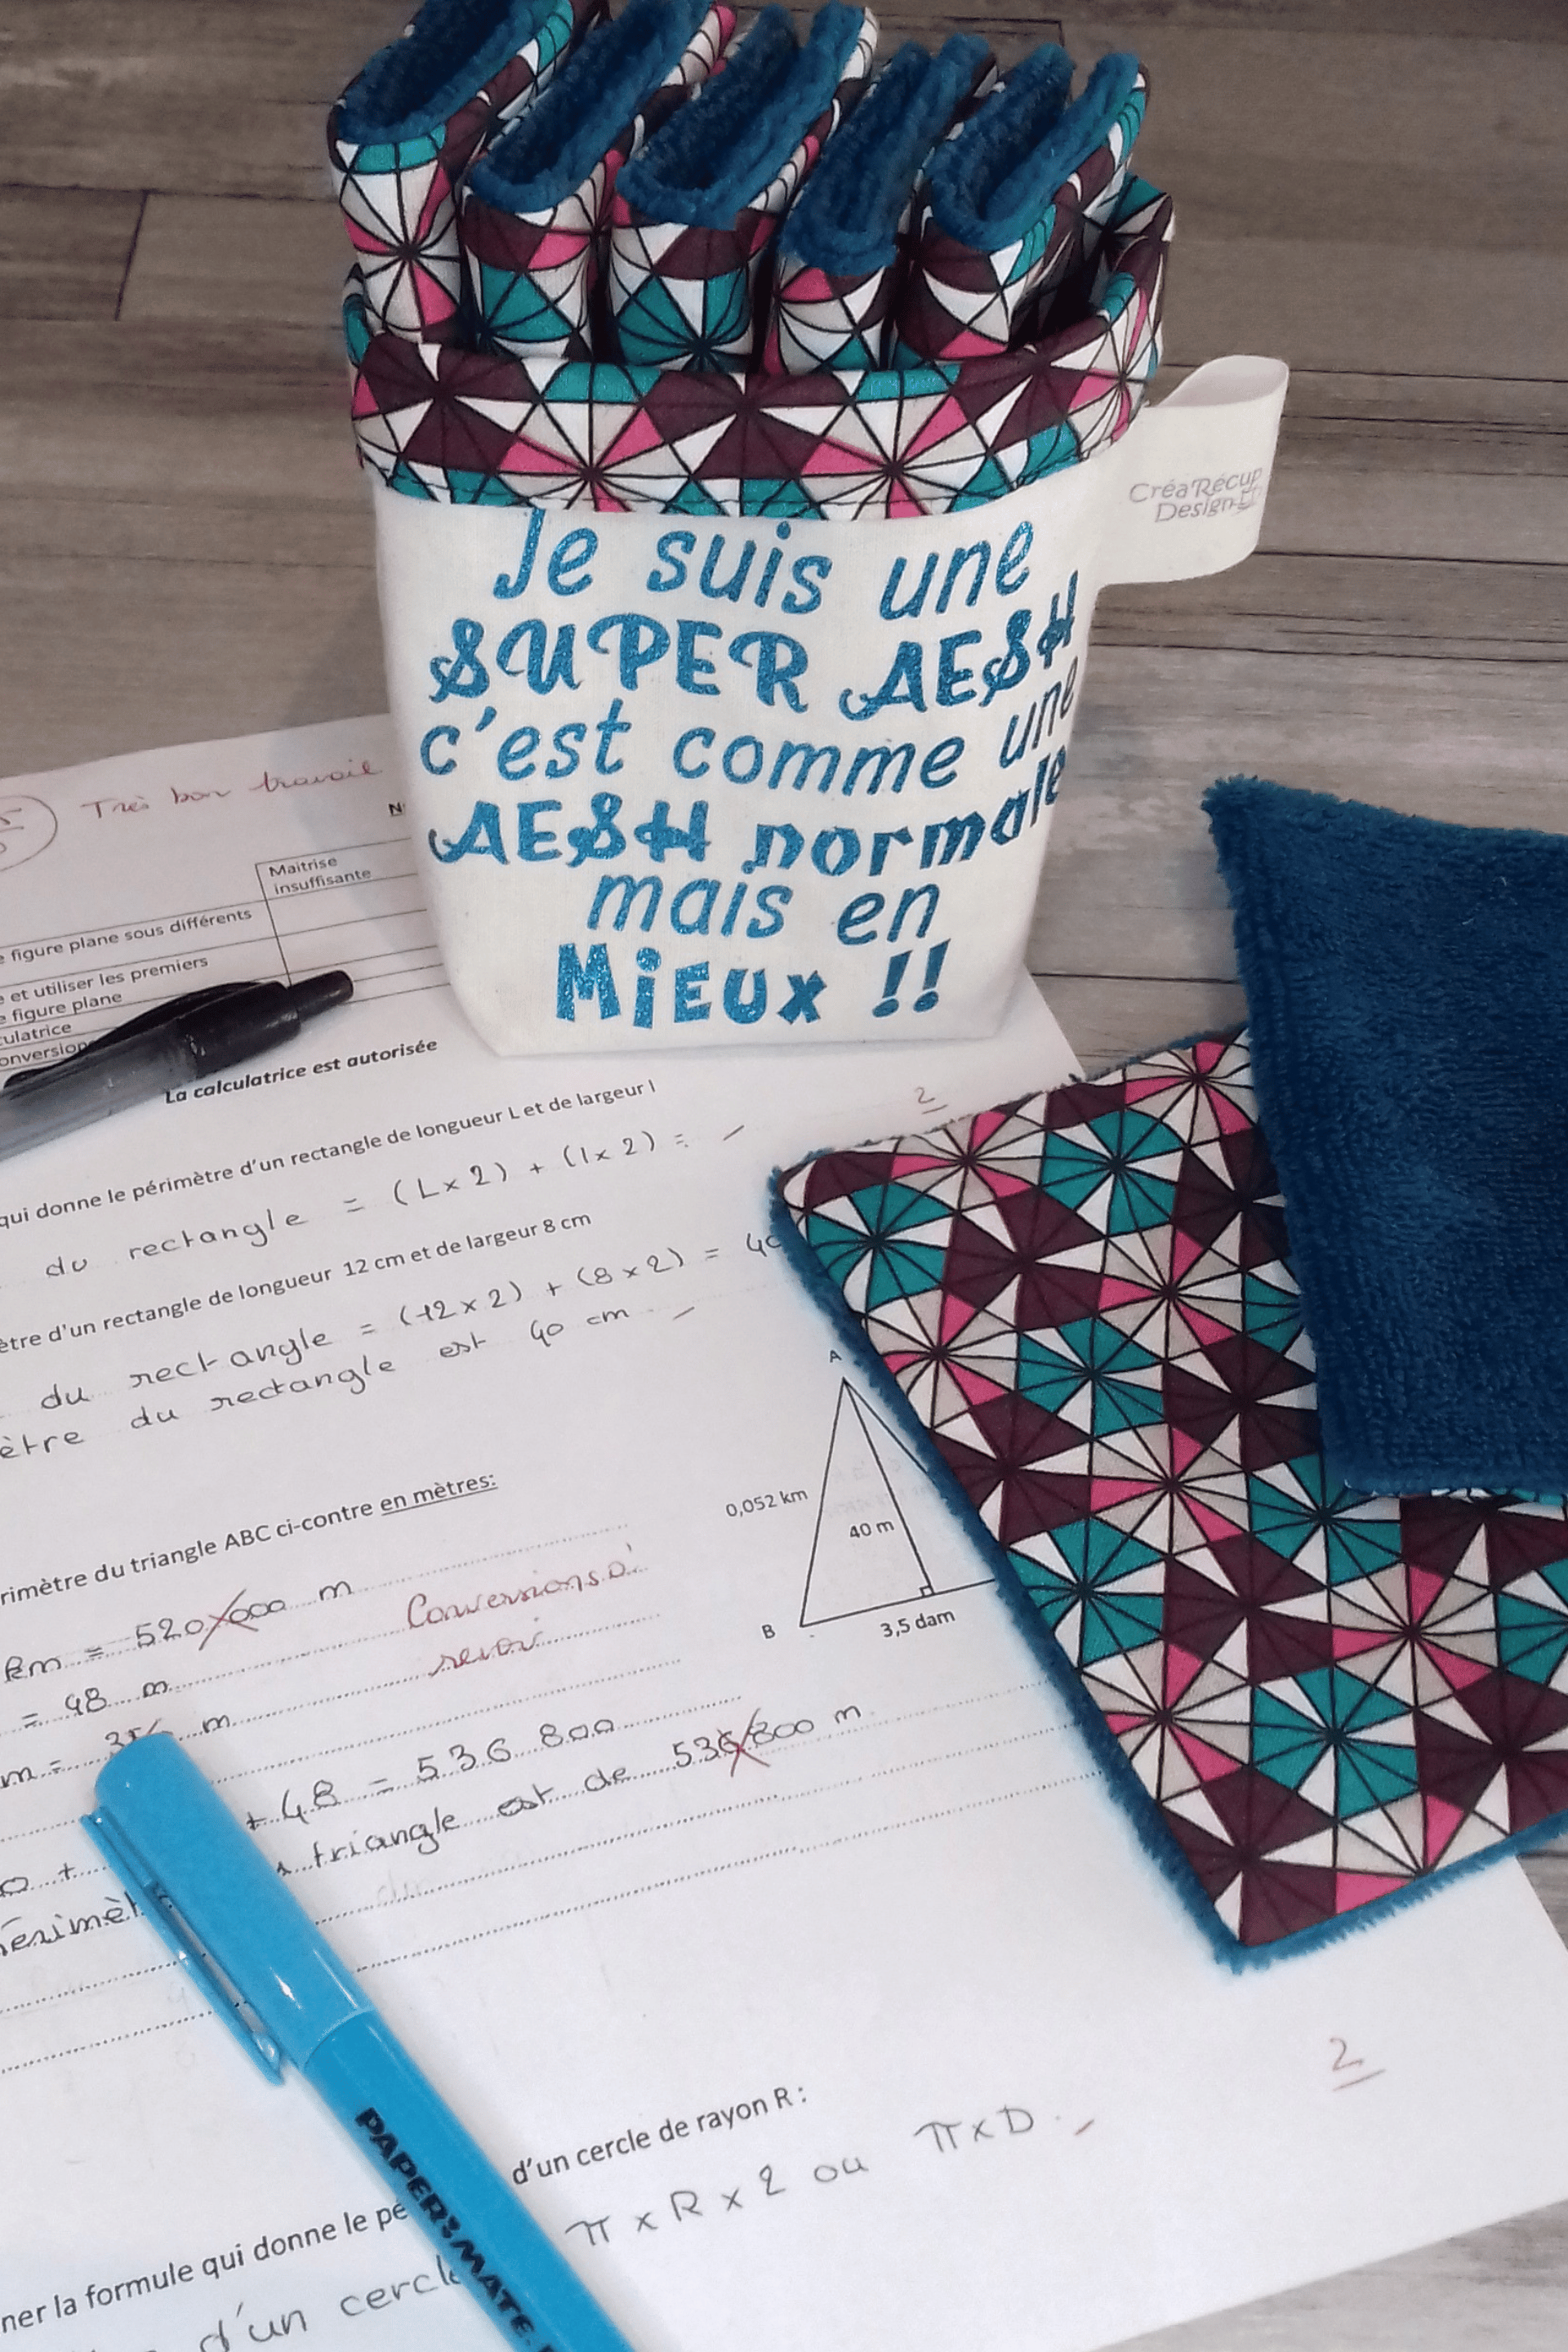 CréaRécup
Design
Je suis une
SUPER AESH
c'est comme une
AESH normale
mais en
MiEUx !!
Très bon travail
Maitrise
insuffisante
figure plane sous différents
et utiliser les premiers
figure plane
La calculatrice est autorisée
2
qui donne le périmètre d'un rectangle de longueur L et de largeur l
du rectangle = (L x 2) + (l x 2) =
d'un rectangle de longueur 12 cm et de largeur 8 cm
du rectangle = (12 x 2) + (8 x 2) = 40
du rectangle est 40 cm
A
0,052 km
40 m
B
3,5 dam
du triangle ABC ci-contre en mètres:
km = 520 000 m
Conversions à
revoir
= 48 m
m = m
+ 48 = 536 800
triangle est de 536 800 m
2
la formule qui donne le d'un cercle de rayon R :
d'un cercle π x R x 2 ou π x D
PAPER:MATE